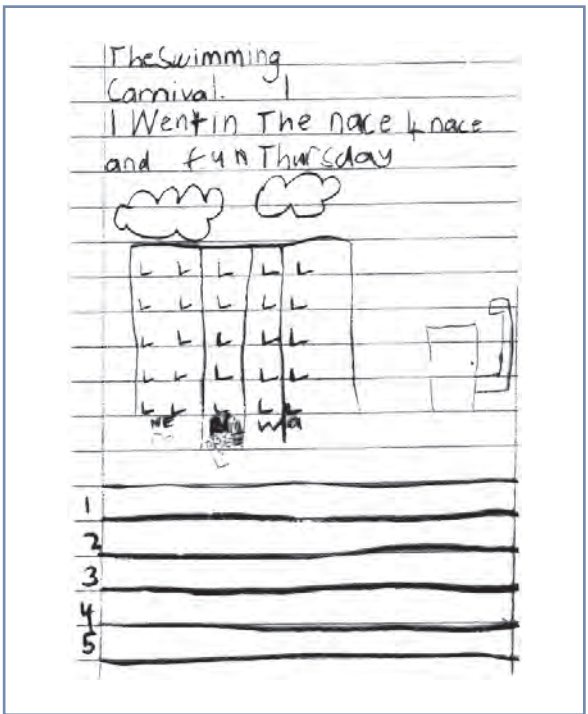 The Swimming
Carnival.
I Went in The nace 4 nace
and fun Thursday
NE W a
1
2
3
4
5